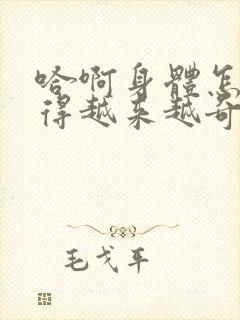 哈啊身體怎
得越来越奇
毛戈平